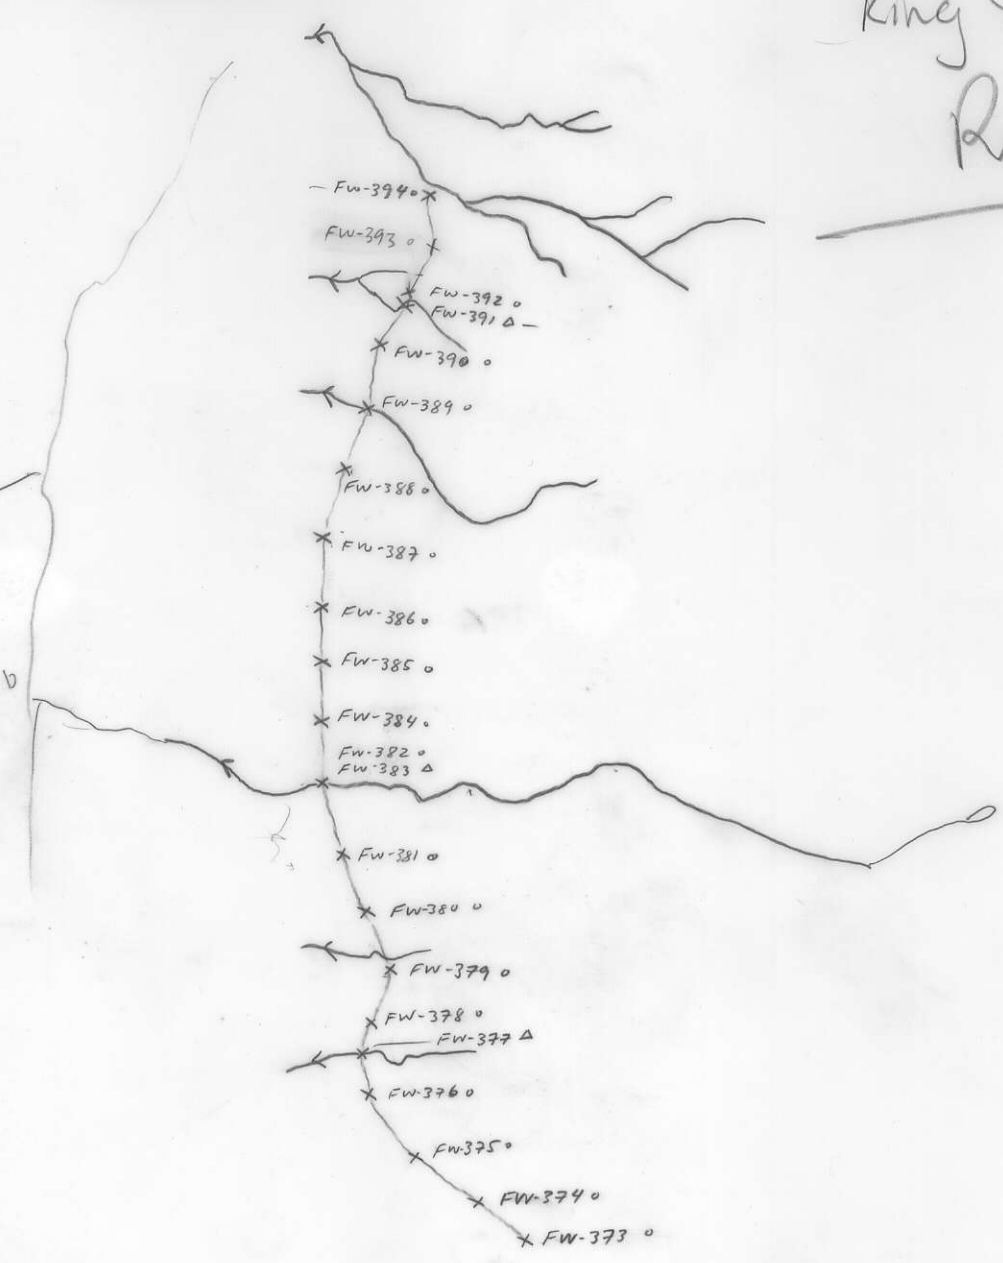 King
R
FW-394
FW-393
FW-392
FW-391 Δ
FW-390
FW-389
FW-388
FW-387
FW-386
FW-385
FW-384
FW-382
FW-383 Δ
FW-381
FW-380
FW-379
FW-378
FW-377 Δ
FW-376
FW-375
FW-374
FW-373